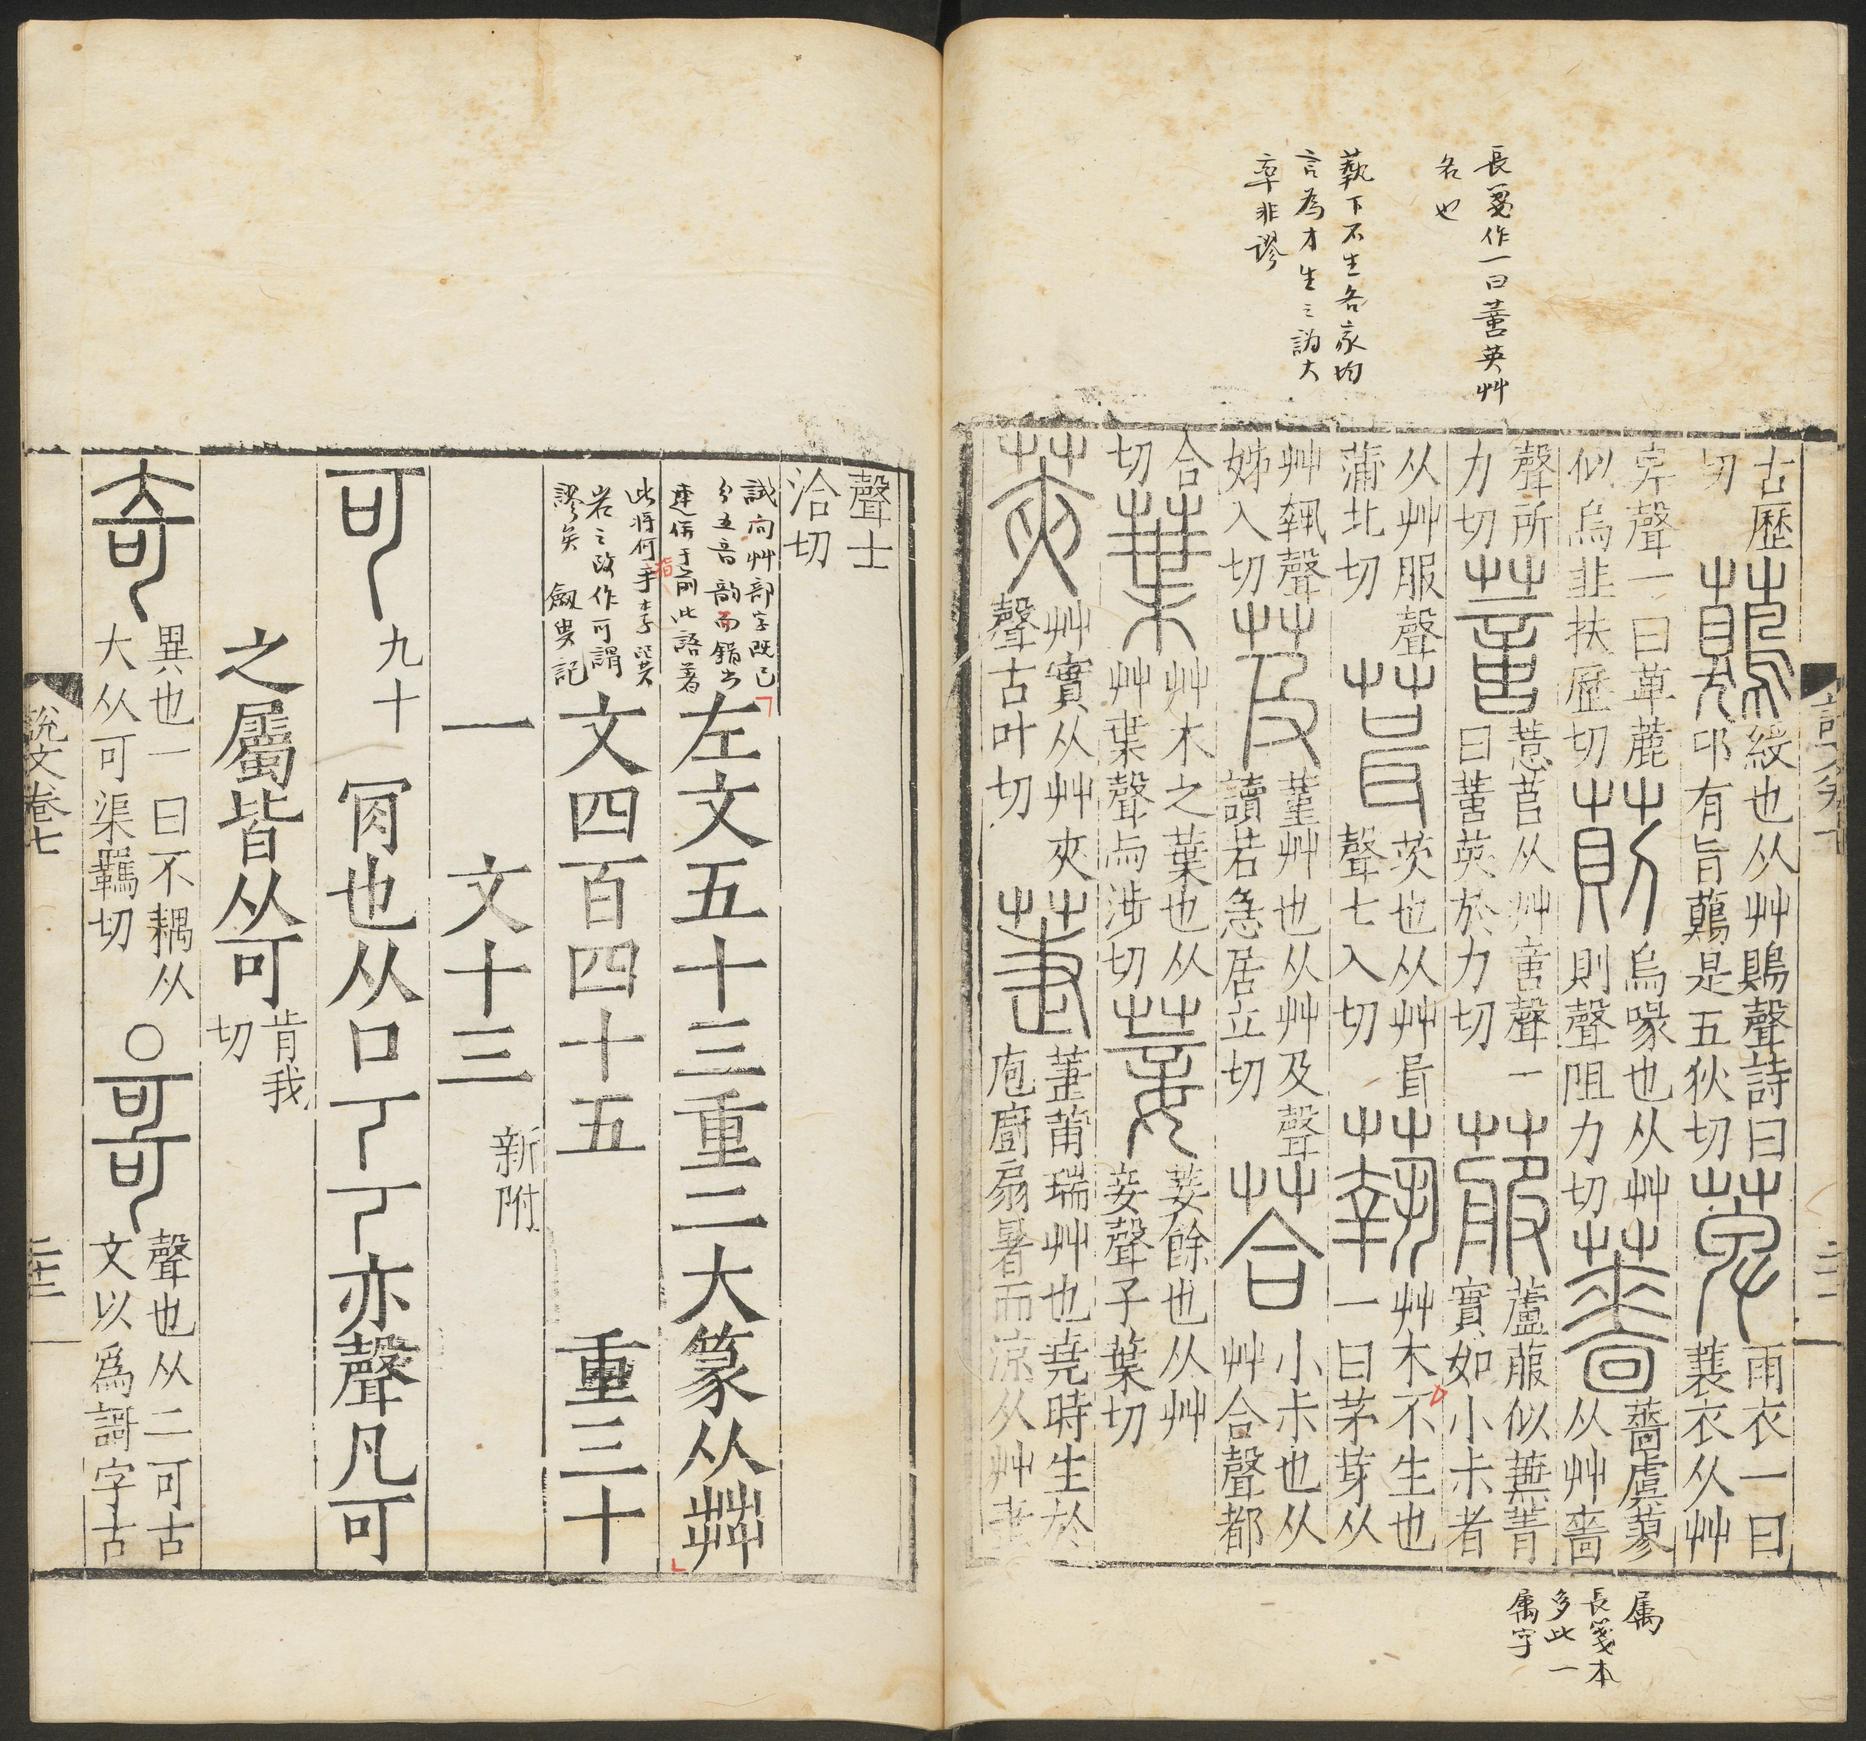 長箋作一曰薏英艸
名也
蓺下不生各家均
言為才生之譌大
率非謬
古歷
切
鷊
綬也从艸鶪聲詩曰
邛有旨虉是五狄切
萆
雨衣一曰
蓑衣从艸
𢌿聲一曰萆藨
似烏韭扶歷切
萴
烏喙也从艸
則聲阻力切
薔
薔虞蓼
从艸嗇
聲所
力切
薏苢从艸音聲一
曰薏英於力切
菔
蘆菔似蕪菁
實如小尗者
从艸服聲
蒲北切
葺
茨也从艸咠
聲七入切
蓻
艸木不生也
一曰茅芽从
艸執聲
姊入切
芨
菫艸也从艸及聲
讀若急居立切
荅
小尗也从
艸合聲都
合
切
葉
艸木之葉也从
艸枼聲与涉切
菨
菨餘也从艸
妾聲子葉切
莢
艸實从艸夾
聲古叶切
萐
萐莆瑞艸也堯時生於
庖廚扇暑而涼从艸疌
屬
長箋本
多此一
屬字
聲士
洽切
誠向艸部字既已
分五音韵而錯出
連併于前此語著
此將何手指
若之改作可謂
謬矣
記
左文五十三重二大篆从茻
文四百四十五　重三十
一　文十三　新附
可
九十
肎也从口丂丂亦聲凡可
之屬皆从可
肯我
切
奇
異也一曰不耦从
大从可渠羈切
○
哥
聲也从二可古
文以爲謌字古
說文卷七
二十三